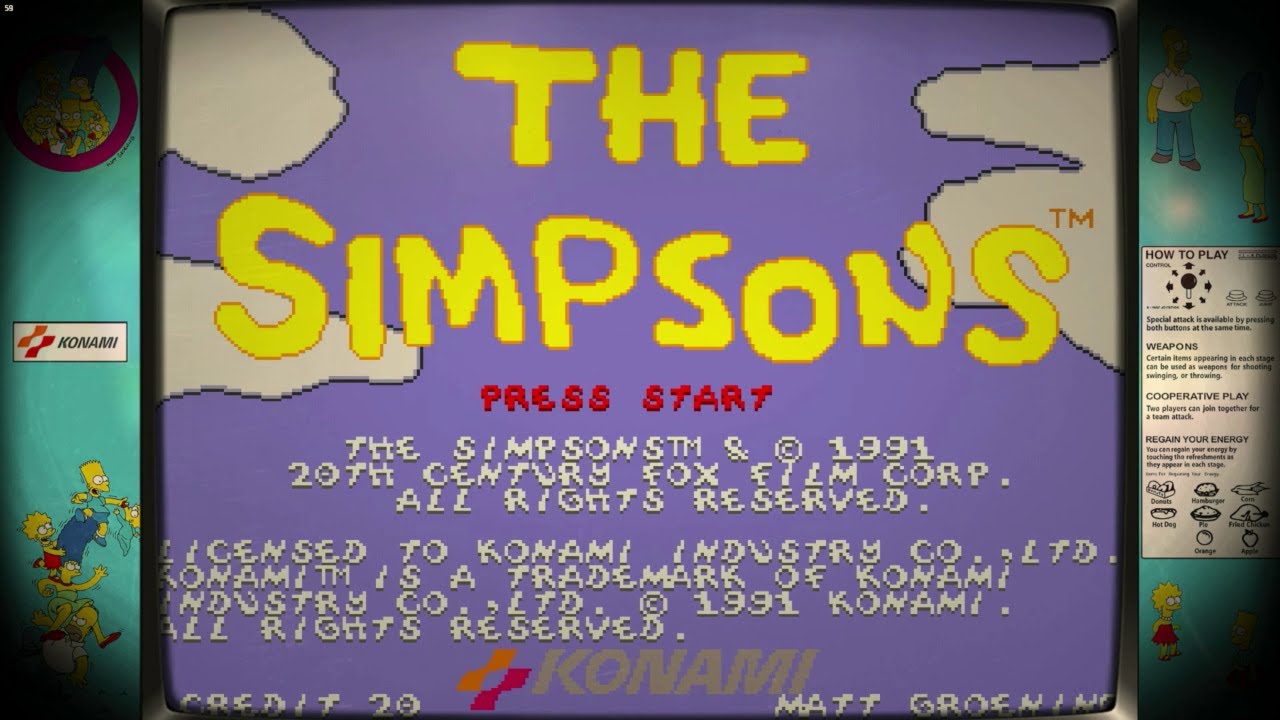 59
THE
SIMPSONS™
PRESS START
THE SIMPSONS™ & © 1991
20TH CENTURY FOX FILM CORP.
ALL RIGHTS RESERVED.
LICENSED TO KONAMI INDUSTRY CO.,LTD.
KONAMI™ IS A TRADEMARK OF KONAMI
INDUSTRY CO.,LTD. © 1991 KONAMI.
ALL RIGHTS RESERVED.
KONAMI
CREDIT 20
MATT GROENING
KONAMI
HOW TO PLAY
CONTROL
ATTACK
JUMP
Special attack is available by pressing
both buttons at the same time.
WEAPONS
Certain items appearing in each stage
can be used as weapons for shooting
swinging, or throwing.
COOPERATIVE PLAY
Two players can join together for
a team attack.
REGAIN YOUR ENERGY
You can regain your energy by
touching the refreshments as
they appear in each stage.
Items for Regaining Your Energy.
Donuts
Hamburger
Corn
Hot Dog
Pie
Fried Chicken
Orange
Apple